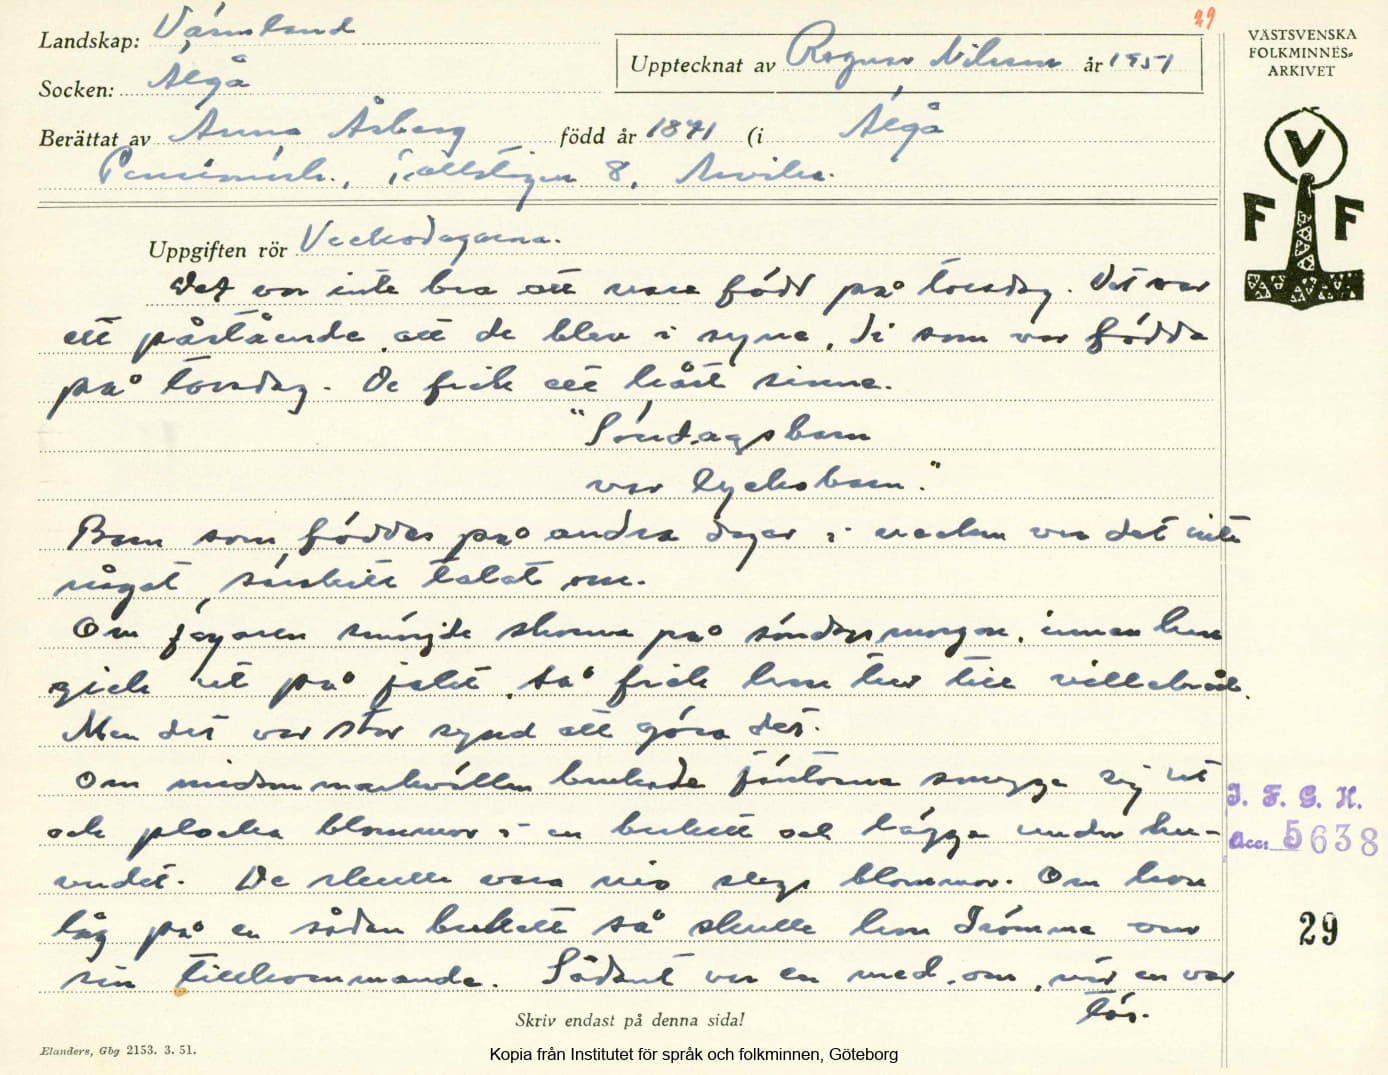 29
Landskap: Värmland
Socken: Älgå
Upptecknat av Ragnar Nilsson år 1951
Berättat av Anna Åsberg född år 1871 (i Älgå
Pensionärsh., 8, Arvika.
VÄSTSVENSKA
FOLKMINNES-
ARKIVET
V
F F
Uppgiften rör Veckodagarna.
Det var inte bra att vara född på torsdag. Det var
ett påstående, att de blev i syne, di som var födda
på torsdag. De fick ett hårt sinne.
"Söndagsbarn
var lycksbarn."
Barn som föddes på andra dagar i veckan var det inte
något särskilt talat om.
Om jägaren smörjde skorna på söndagsmorgon, innan han
gick ut på jakt, så fick han tur till villebråd.
Men det var stor synd att göra det.
Om midsommarkvällen brukade jäntorna smyga sej ut
och plocka blommor i en bukett och lägga under hu-
vudet. De skulle vara nio slags blommor. Om hon
låg på en sådan bukett så skulle hon drömma om
sin tillkommande. Sådant var en med om, när en var
tös.
J. F. G. H.
Acc: 5638
29
Skriv endast på denna sida!
Elanders, Gbg 2153. 3. 51.
Kopia från Institutet för språk och folkminnen, Göteborg